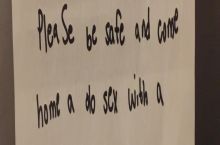 PleaSe be safe and come
home a do sex with a